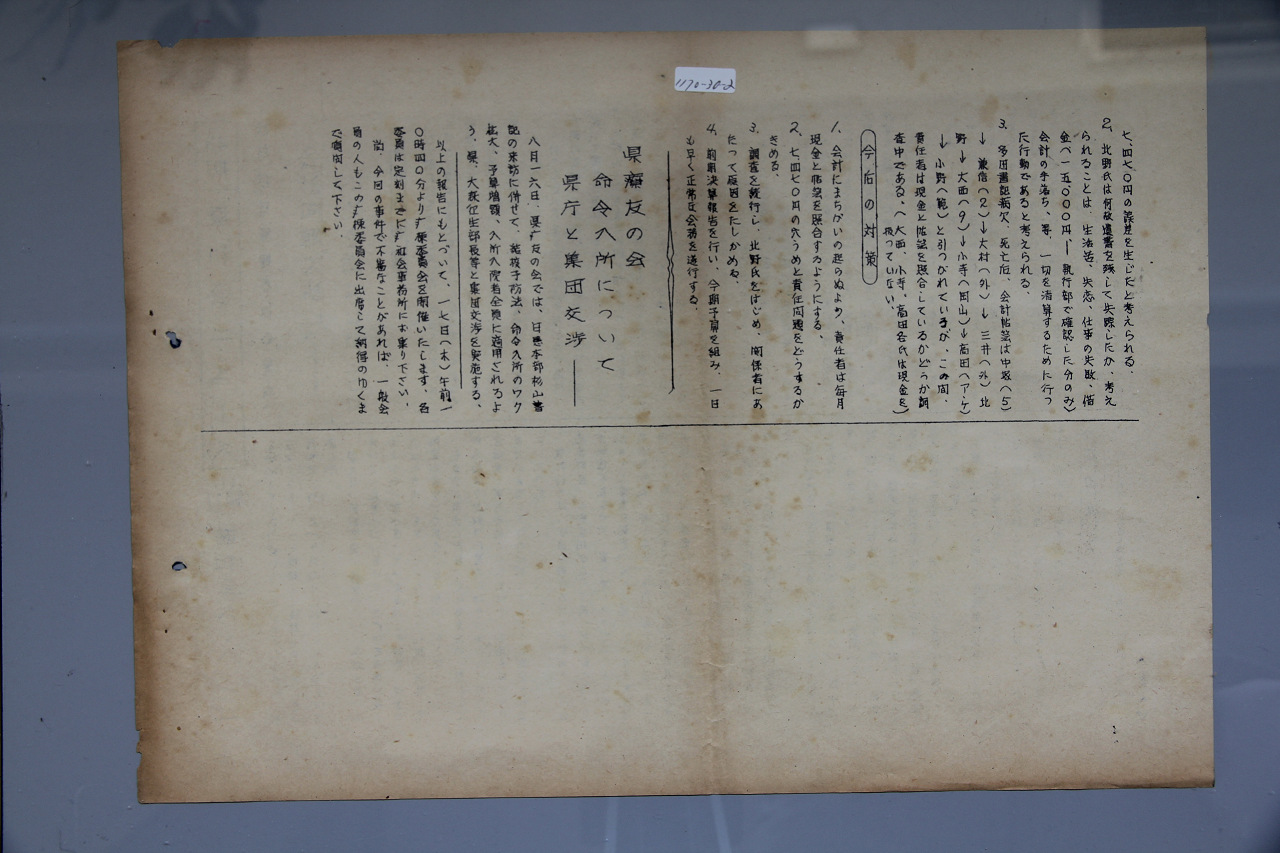 1170-30-2
七、四七〇円の誤差を生じたと考えられる。
2、北野氏は何故遺書を残して失踪したか、考え
られることは、生活苦、失恋、仕事の失敗、借
金(一五〇〇〇円―執行部で確認した分のみ)
会計の手落ち、等、一切を清算するために行つ
た行動であると考えられる。
3、多田書記病欠、死亡后、会計帖簿は中塚(5)
↓兼信(2)↓大村(外)↓三井(外)北
野↓大西(9)↓小寺(岡山)↓高田(ア、ケ)
↓小野(範)と引つがれているが、この間、
責任者は現金と帖簿を照合しているかどうか調
査中である、(大西、小寺、高田各氏は現金を
扱つていない。)
今后の対策
1、会計にまちがいの起らぬよう、責任者は毎月
現金と帖簿を照合するようにする。
2、七四七〇円の穴うめと責任問題をどうするか
きめる。
3、調査を続行し、北野氏をはじめ、関係者にあ
たつて原因をたしかめる。
4、前期決算報告を行い、今期予算を組み、一日
も早く正常な会務を遂行する。
県療友の会
命令入所について
県庁と集団交渉―
八月一六日、県疒友の会では、日患本部杉山書
記の来訪に併せて、結核予防法、命令入所のワク
拡大、予算増額、入所入院者全員に適用されるよ
う、県、大森衛生部長等と集団交渉を実施する、
以上の報告にもとづいて、一七日(木)午前一
〇時四〇分より疒棟委員会を開催いたします、各
委員は定刻までに疒社会事務所にお集り下さい、
尚、今回の事件で不審なことがあれば、一般会
員の人もこの疒棟委員会に出席して納得のゆくま
で質問して下さい。